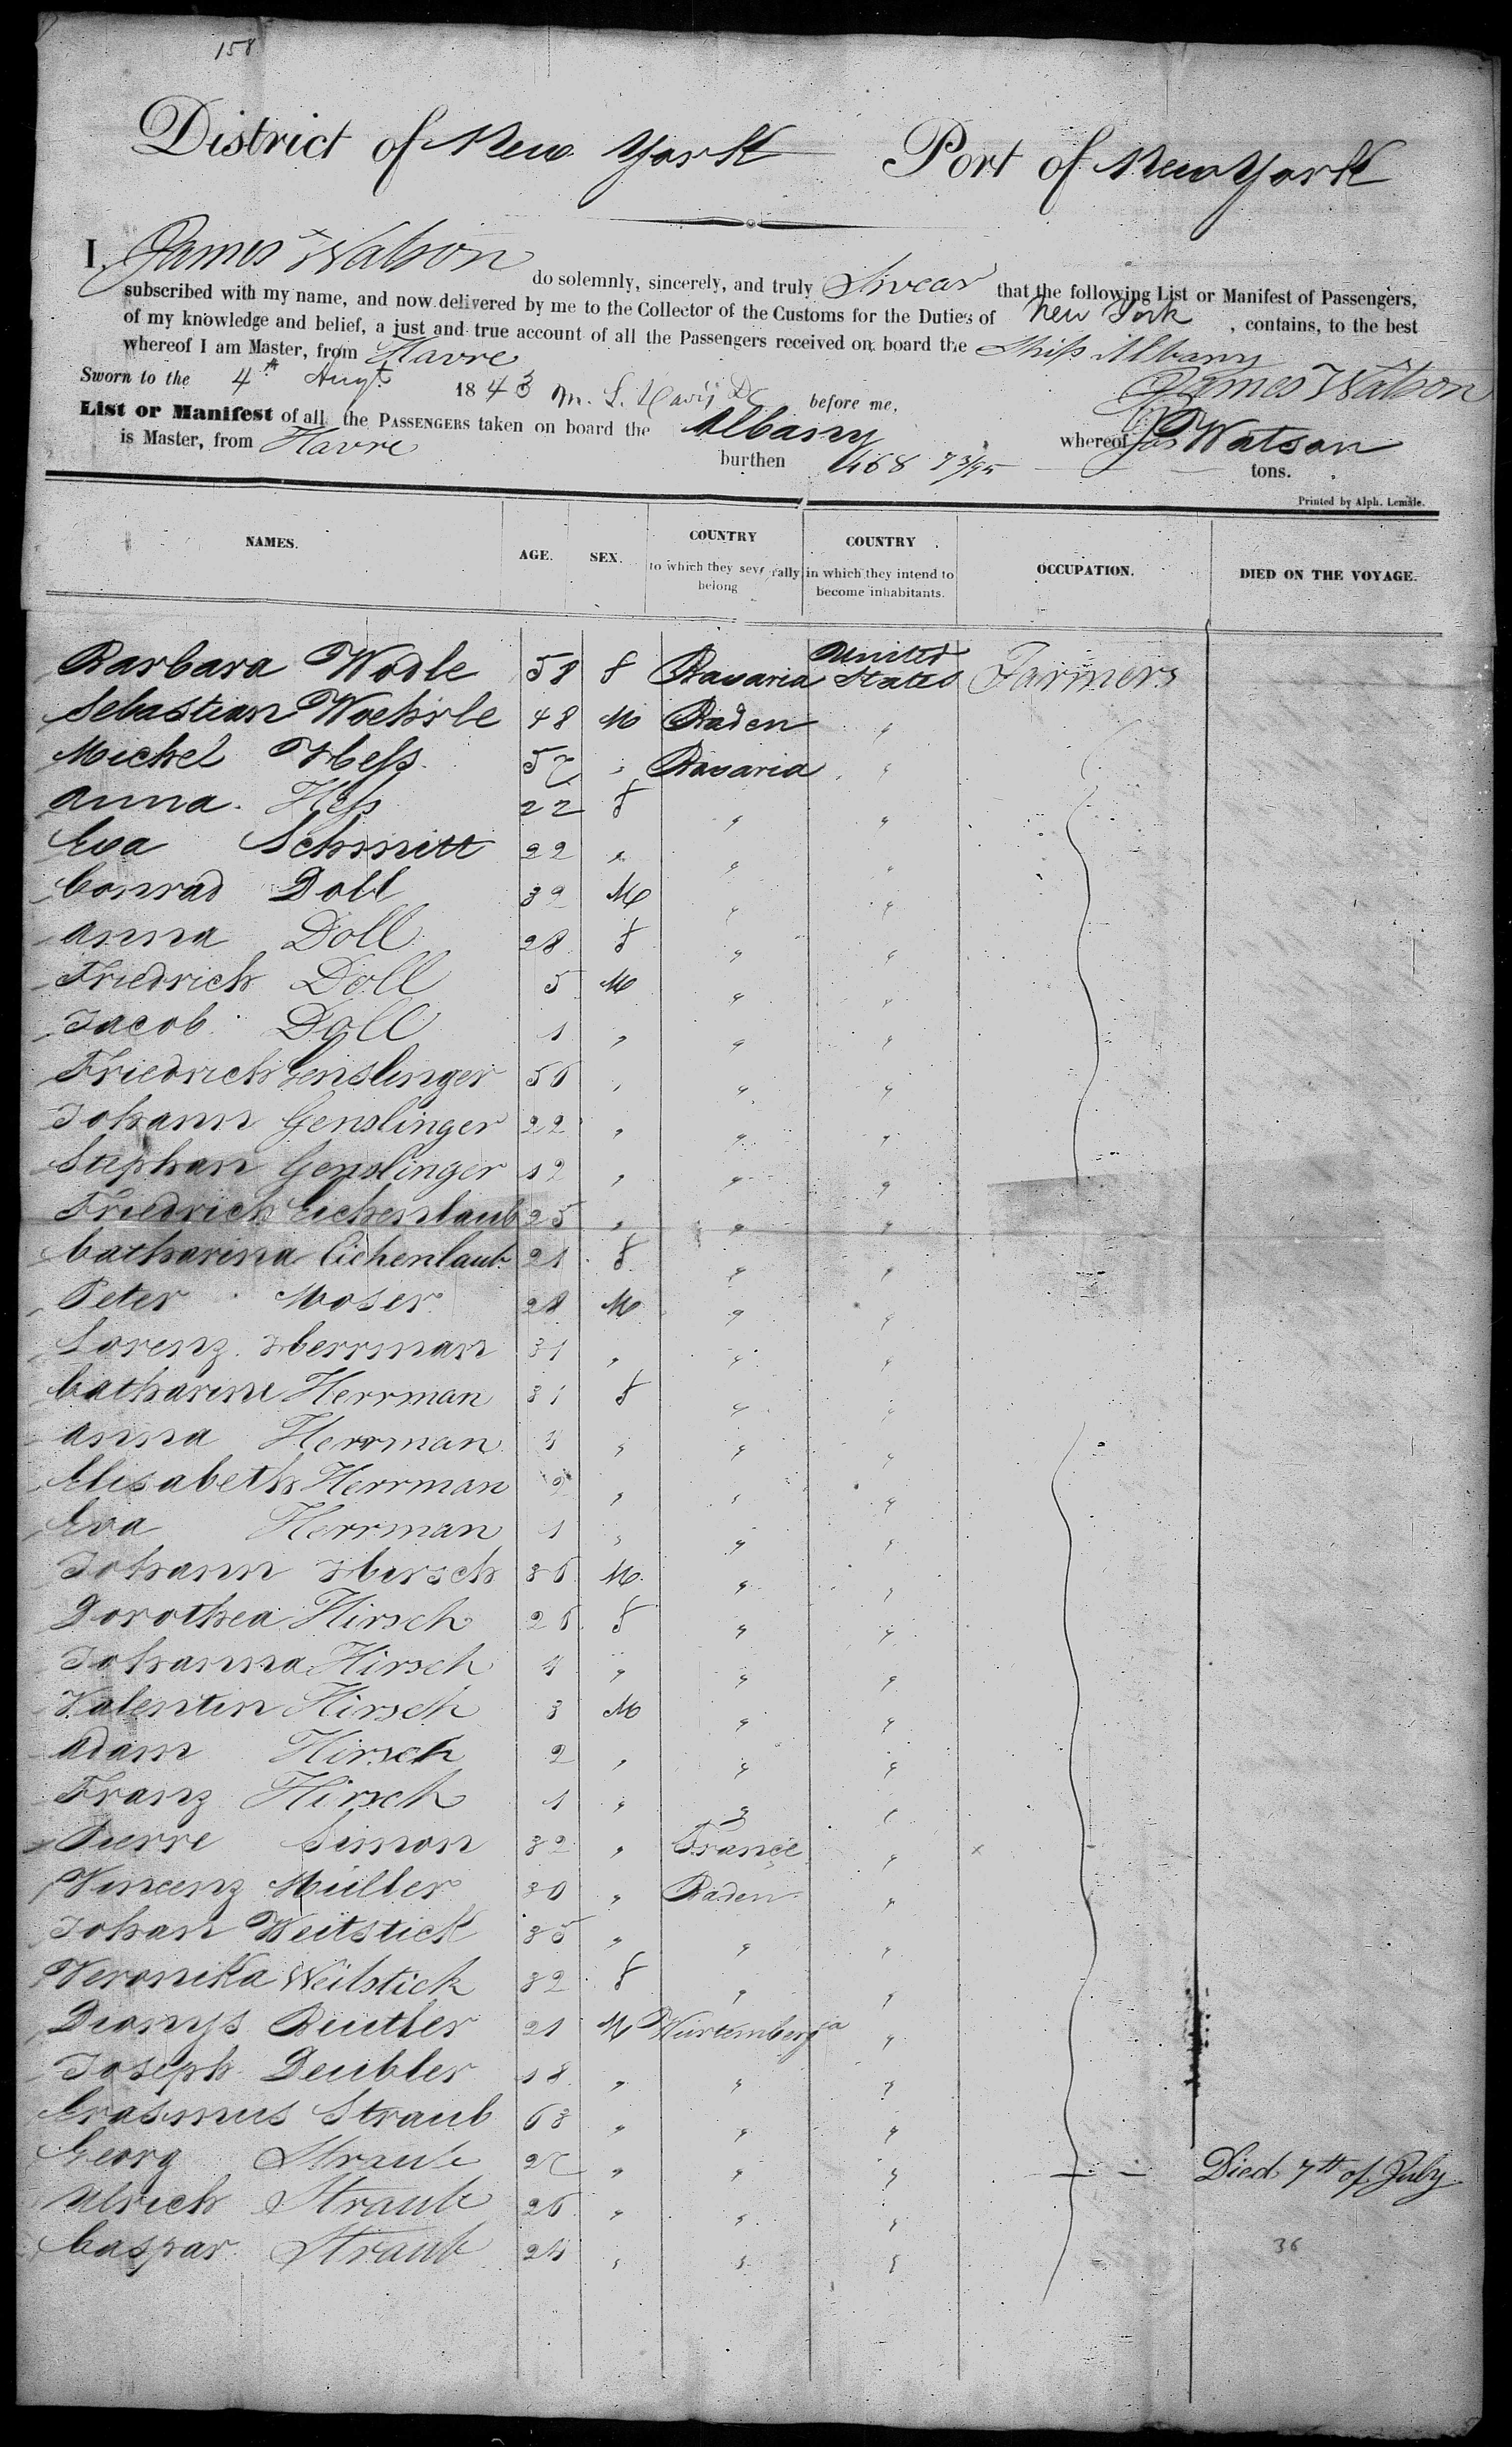 158
District of New York Port of New York
I, James Watson do solemnly, sincerely, and truly Swear that the following List or Manifest of Passengers,
subscribed with my name, and now delivered by me to the Collector of the Customs for the Duties of New York , contains, to the best
of my knowledge and belief, a just and true account of all the Passengers received on board the Ship Albany
whereof I am Master, from Havre
James Watson
Sworn to the 4th Augt 1843 before me,
List or Manifest of all the PASSENGERS taken on board the Albany whereof Jas Watson
is Master, from Havre burthen 468 73/95 tons.
Printed by Alph. Lemâle.
NAMES. AGE. SEX. COUNTRY to which they severally belong COUNTRY in which they intend to become inhabitants. OCCUPATION. DIED ON THE VOYAGE.
Barbara Wodle 58 f Bavaria United States Farmers
Sebastian Woehrle 48 M Baden "
Michel Heſs 57 " Bavaria "
Anna Heſs 22 f " "
Eva Schmitt 22 " " "
Conrad Doll 32 M " "
Anna Doll 28 f " "
Friedrich Doll 5 M " "
Jacob Doll 1 " " "
Friedrich Genslinger 56 " " "
Johann Genslinger 22 " " "
Stephan Genslinger 12 " " "
Friedrich Eichenlaub 25 " " "
Catharina Eichenlaub 21 f " "
Peter Moser 28 M " "
Lorenz Herrman 31 " " "
Catharine Herrman 31 f " "
Anna Herrman 4 " " "
Elisabeth Herrman 2 " " "
Eva Herrman 1 " " "
Johann Hirsch 36 M " "
Dorothea Hirsch 26 f " "
Johanna Hirsch 4 " " "
Valentin Hirsch 3 M " "
Adam Hirsch 2 " " "
Franz Hirsch 1 " " "
Pierre Simon 32 " France " x
Vincenz Müller 30 " Baden "
Johan Weitstick 35 " " "
Veronika Weitstick 32 f " "
Dionys Beutler 21 M Würtemberg "
Joseph Deubler 18 " " "
Erasmus Straub 63 " " "
Georg Straub 27 " " " Died 7th of July
Ulrich Straub 26 " " "
Caspar Straub 24 " " "
36